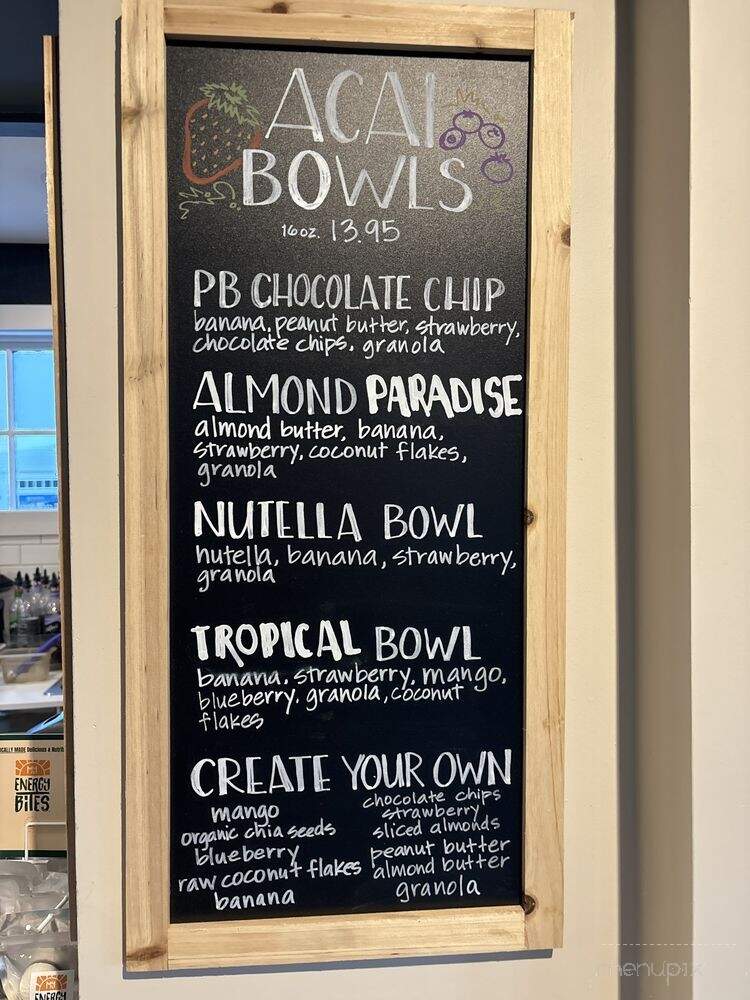 ACAI
BOWLS
16oz. 13.95
PB CHOCOLATE CHIP
banana, peanut butter, strawberry,
chocolate chips, granola
ALMOND PARADISE
almond butter, banana,
strawberry, coconut flakes,
granola
NUTELLA BOWL
nutella, banana, strawberry,
granola
TROPICAL BOWL
banana, strawberry, mango,
blueberry, granola, coconut
flakes
CREATE YOUR OWN
mango
organic chia seeds
blueberry
raw coconut flakes
banana
chocolate chips
strawberry
sliced almonds
peanut butter
almond butter
granola
MY
ENERGY
BITES
MY
ENERGY
menupix